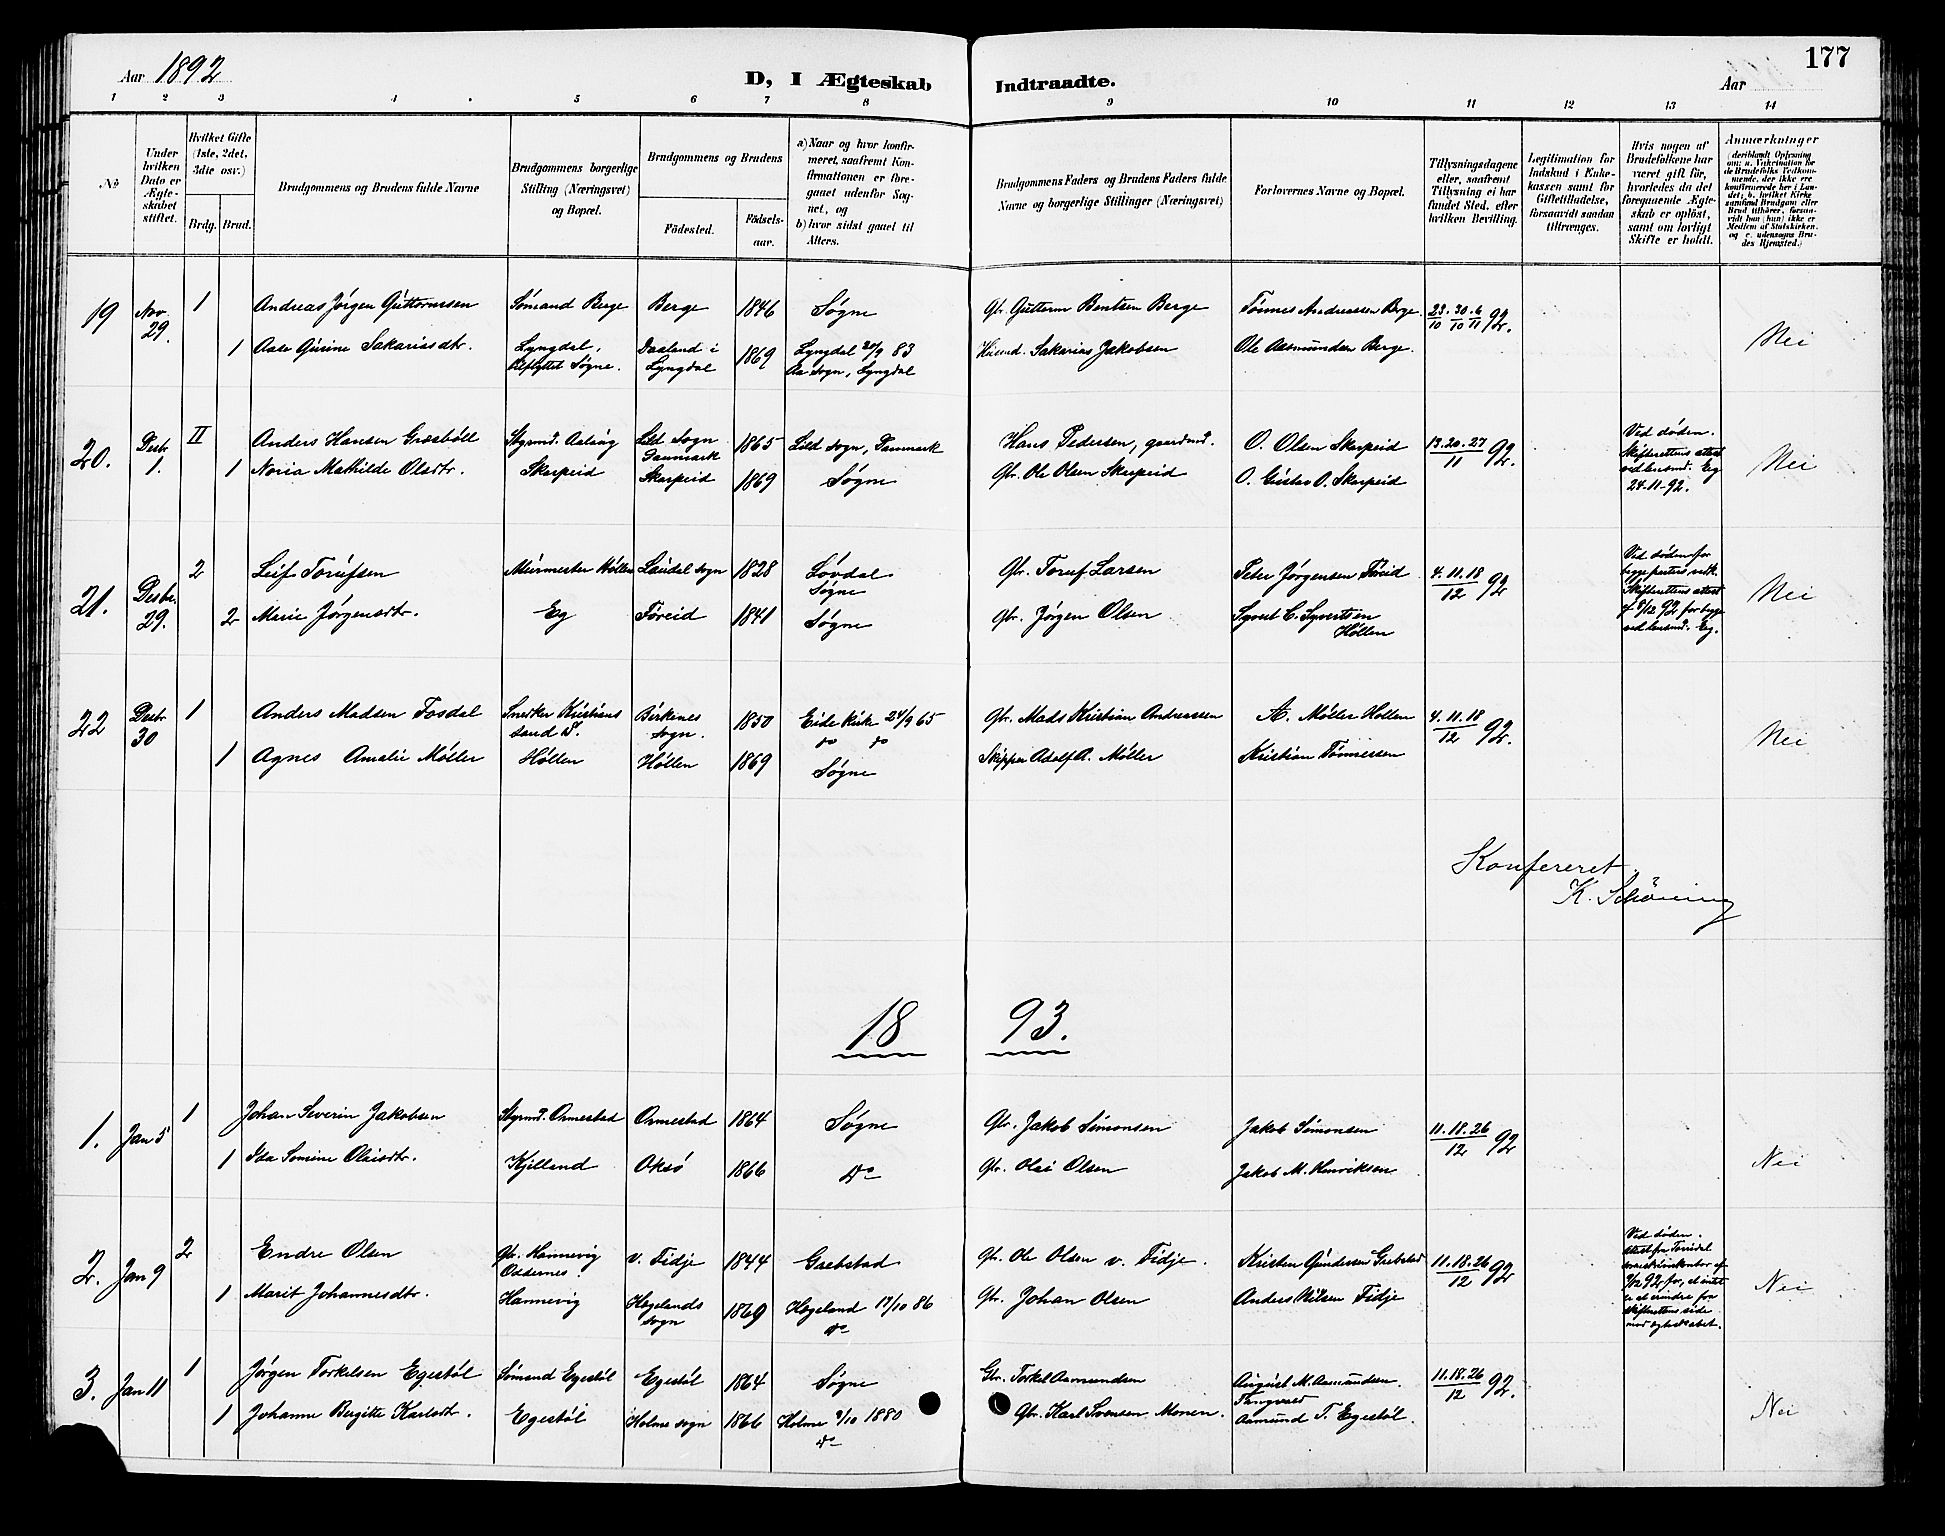 177
Aar 1892
D, I Ægteskab Indtraadte.
Aar
1 2 3 4 5 6 7 8 9 10 11 12 13 14
No
Under hvilken Dato er Ægteskabet stiftet.
Hvilket Gifte (1ste, 2det, 3die osv.)
Brdg. Brud.
Brudgommens og Brudens fulde Navne
Brudgommens borgerlige Stilling (Næringsvei) og Bopæl.
Brudgommens og Brudens
Födested.
Födselsaar.
a) Naar og hvor konfirmeret, saafremt Konfirmationen er foregaaet udenfor Sognet, og
b) hvor sidst gaaet til Alters.
Brudgommens Faders og Brudens Faders fulde Navne og borgerlige Stillinger (Næringsvei)
Forlovernes Navne og Bopæl.
Tillysningsdagene eller, saafremt Tillysning ei har fundet Sted, efter hvilken Bevilling.
Legitimation for Indskud i Enkekassen samt for Giftetilladelse, forsaavidt saadan tiltrænges.
Hvis nogen af Brudefolkene har været gift før, hvorledes da det foregaaende Ægteskab er oplöst, samt om lovligt Skifte er holdt.
Anmærkninger
19 Nov. 29. 1 Andreas Jørgen Guttormsen Sömand Berge Berge 1846 Søgne Gbr. Guttorm Bentsen Berge Tönnes Andreassen Berge. 23. 30. 6 / 10 10 11 92.
1 Aase Gurine Sakariasdtr. Lyngdal, tilflyttet Søgne. Daaland i Lyngdal 1869 Lyngdal 20/9 83 Aa sogn, Lyngdal Husmd. Sakarias Jakobsen Ole Aasmundsen Berge. Nei
20. Desbr. 1. II Anders Hansen Græsböll Styrmd. Aalborg Lild sogn Danmark 1865 Lild sogn, Danmark Hans Pedersen, gaardmd. O. Olsen Skarpeid 13. 20. 27 / 11 92. Ved døden. Skifterettens attest ved lensmd. Eg 24-11-92.
1 Noria Mathilde Olsdtr. Skarpeid Skarpeid 1869 Søgne Gbr. Ole Olsen Skarpeid O. Gustav O. Skarpeid Nei
21. Desbr. 29. 2 Leif Torufsen Murmester Höllen Laudal sogn 1828 Løvdal Søgne Gbr. Toruf Larsen Peter Jørgensen Föreid 4. 11. 18 / 12 92 Ved døden for begge parters vedk. Skifterettens attest af 9/12 92 for begge ved lensmd. Eg.
2 Marie Jørgensdtr. Eg Föreid 1841 Søgne Gbr. Jørgen Olsen Syvert C. Syvertsen Höllen Nei
22 Desbr 30 1 Anders Madsen Fosdal Snedker Kristianssand S. Birkenes sogn. 1850 Eide kirke 24/9 65 do do Gbr. Mads Kristian Andreassen A. Möller Höllen 4. 11. 18 / 12 92.
1 Agnes Amalie Möller Höllen Höllen 1869 Søgne Skipper Adolf A. Möller Kristian Tönnessen Nei
Konfereret
K. Schöning
18 93.
1. Jan 5 1 Johan Severin Jakobsen Styrmd. Ormestad Ormestad 1864 Søgne Gbr. Jakob Simonsen Jakob Simonsen 11. 18. 26 / 12 92
1 Ida Somine Olaisdtr. Kjelland Oksö 1866 do Gbr. Olai Olsen Jakob M. Henriksen Nei
2. Jan 9 2 Endre Olsen Gbr. Hannevig Oddernes. v. Tidje 1844 Grebstad Gbr. Ole Olsen v. Tidje. Kristen Gundersen Grebstad 11. 18. 26 / 12 92 Ved døden.
1 Marit Johannesdtr. Hannevig Hægelands sogn 1869 Hægeland 17/10 86 do Gbr. Johan Olsen Anders Nilsen Tidje Nei
3. Jan 11 1 Jørgen Torkelsen Egestöl Sömand Egestöl Egestöl 1864 Søgne Gbr. Torkel Aamundsen August M. Aamundsen. 11. 18. 26 / 12 92.
1 Johanne Bergitte Karlsdtr. Egestöl Holme sogn 1866 Holme 3/10 1880 do Gbr. Karl Svensen Monen. Aamund T. Egestöl. Nei